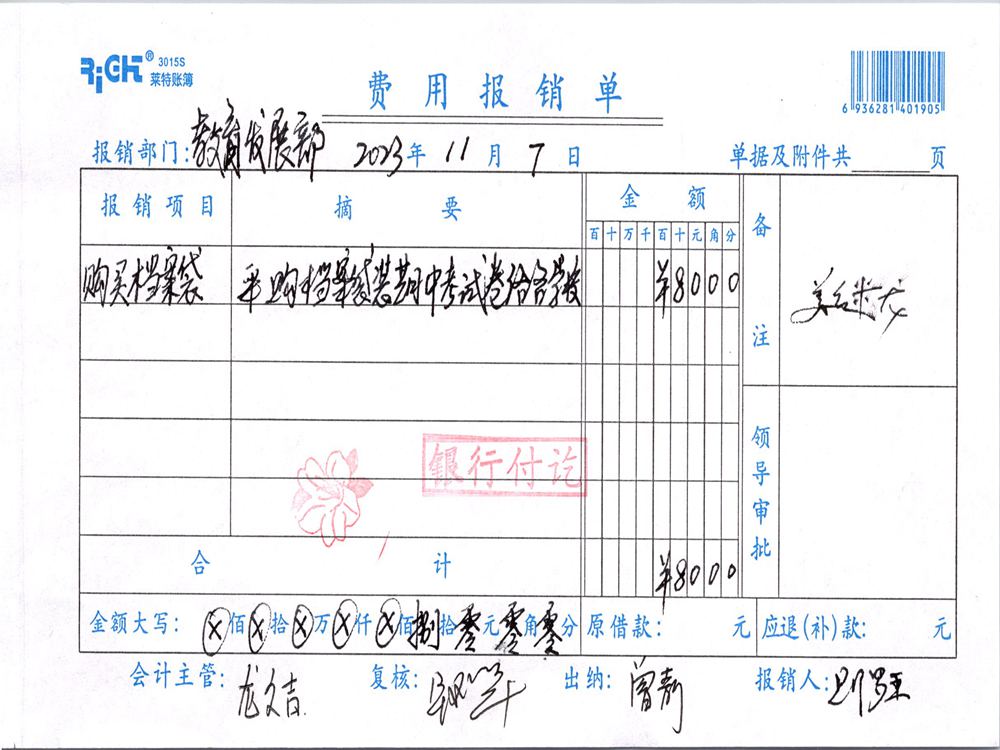 RiGHT® 3015S
莱特账簿
费用报销单
6 936281 401905
报销部门:教育发展部 2023年11月7日 单据及附件共 页
报销项目 摘要 金额 备注
百十万千百十元角分
购买档案袋 采购档案袋装期中考试卷给各学校 ¥8000
银行付讫
领导审批
合计 ¥8000
金额大写:ⓧ佰ⓧ拾ⓧ万ⓧ仟ⓧ佰捌拾零元零角零分 原借款: 元 应退(补)款: 元
会计主管:龙文吉 复核: 出纳:曾莉 报销人: